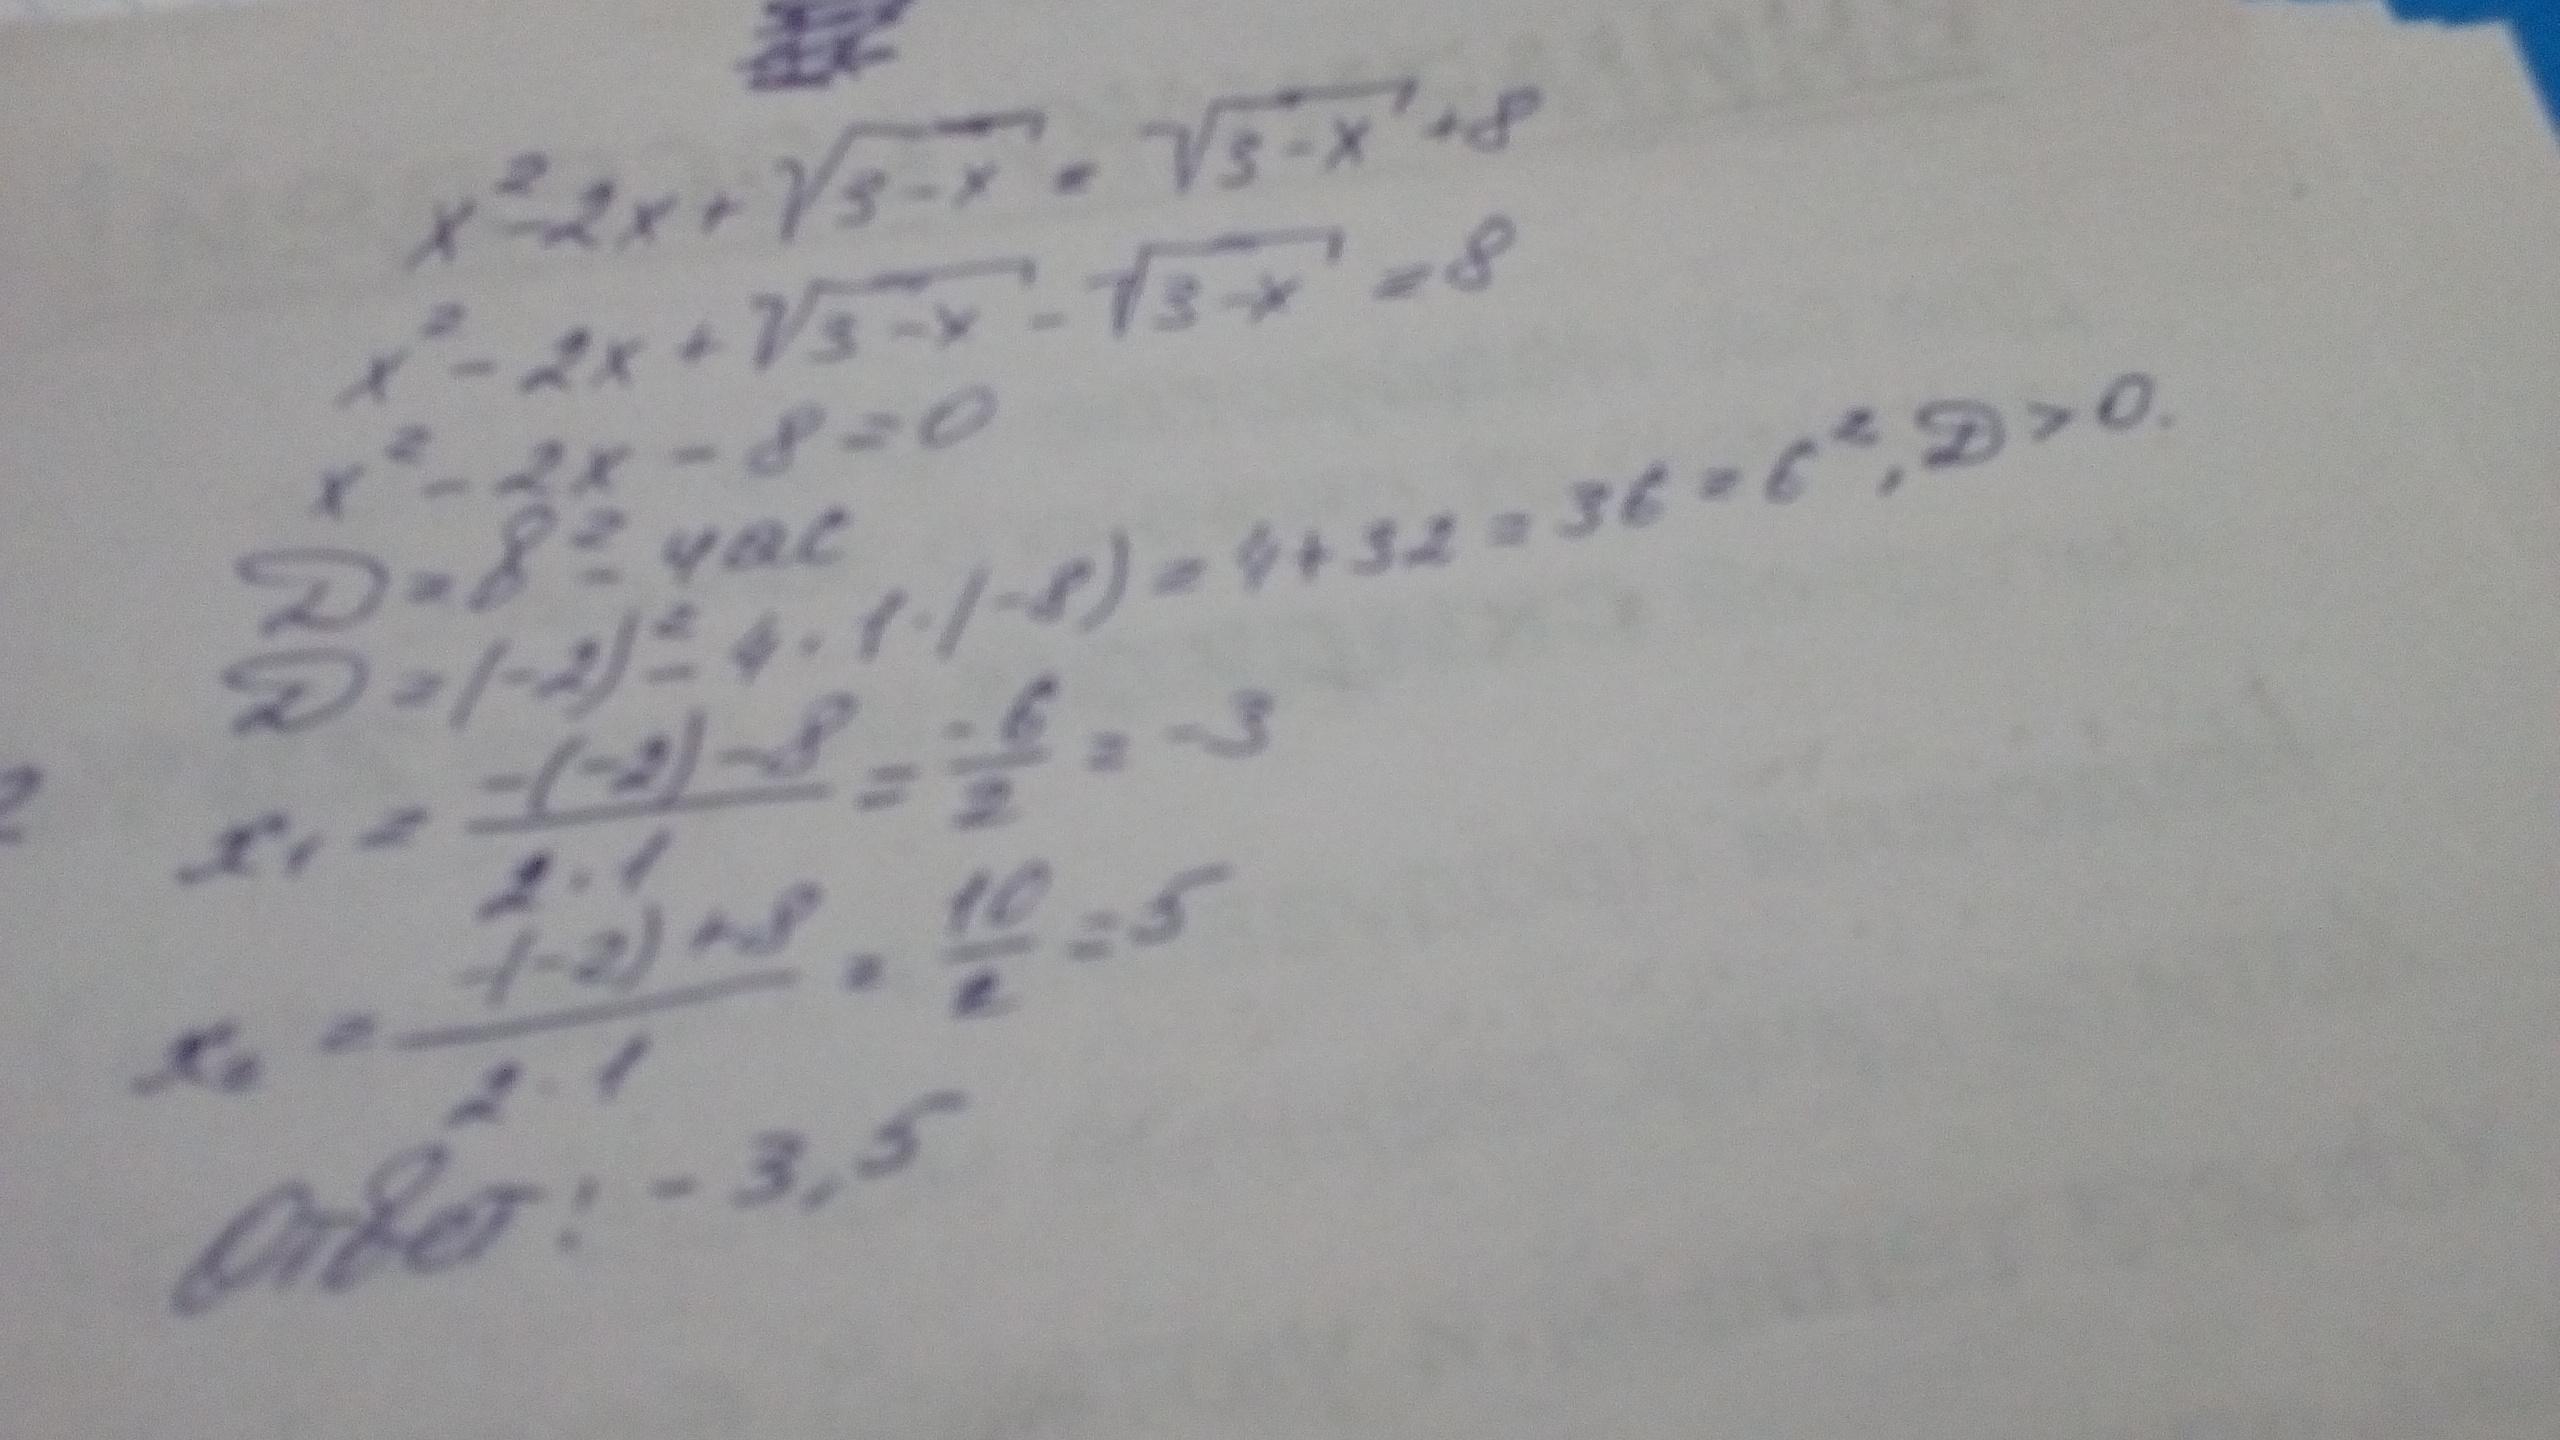 x² - 2x + √3-x = √3-x + 8
x² - 2x + √3-x - √3-x = 8
x² - 2x - 8 = 0
D = в² - 4ac
D = (-2)² - 4 · 1 · (-8) = 4 + 32 = 36 = 6², D > 0.
x₁ = -(-2) - 8 / 2 · 1 = -6 / 2 = -3
x₂ = -(-2) + 8 / 2 · 1 = 10 / 2 = 5
Ответ: -3, 5